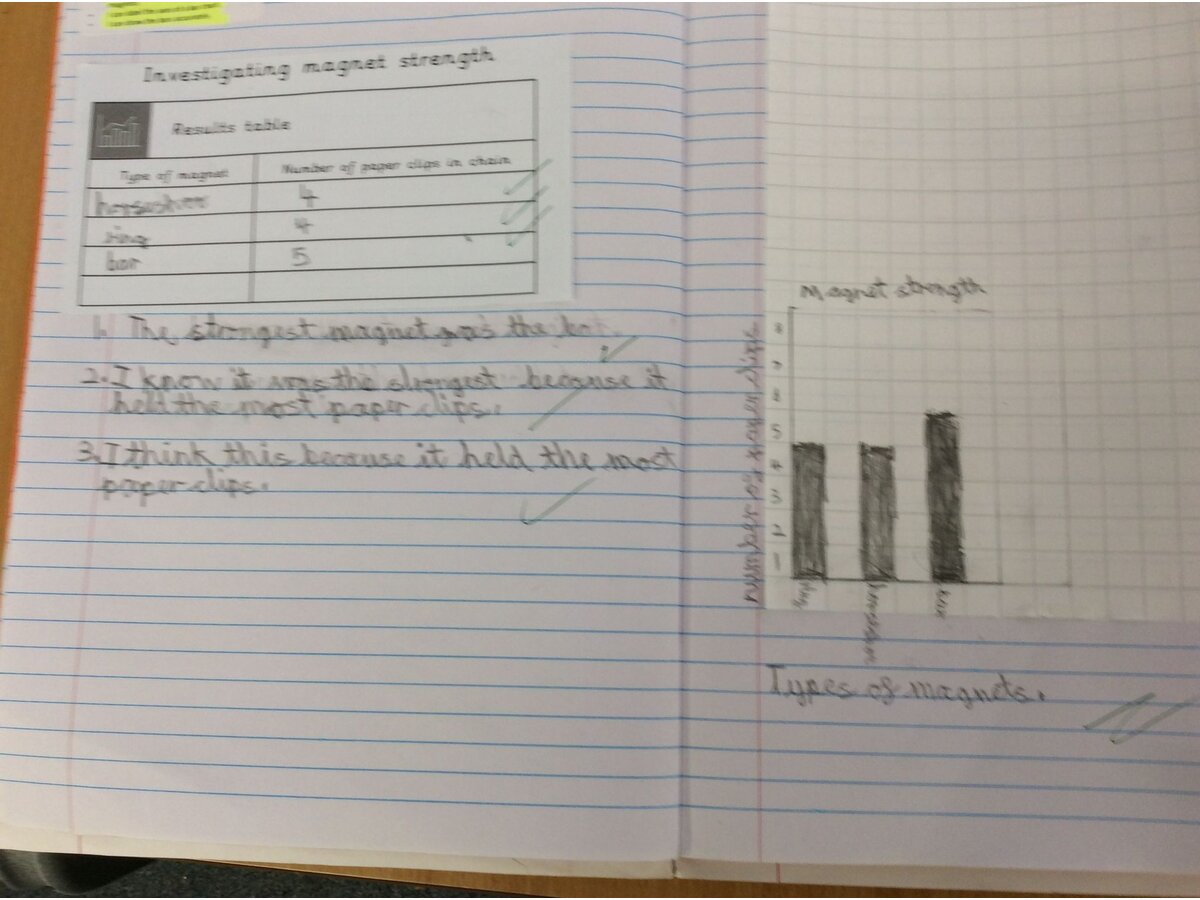 Investigating magnet strength
Results table
Type of magnet Number of paper clips in chain
4
ring 4
bar 5
1. The strongest magnet was the
2. I know it was the strongest because it
held the most paper clips.
3. I think this because it held the most
paper clips.
Magnet strength
number of paper clips
8
7
6
5
4
3
2
1
Types of magnets.